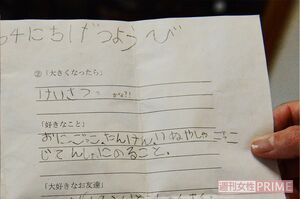 がつ4にちげつようび
②「大きくなったら」
けいさつ かな?!
「好きなこと」
おにごっこ.たんけん.いぬやしゃごっこ
じてんしゃにのること.
「大好きなお友達」
週刊女性PRIME